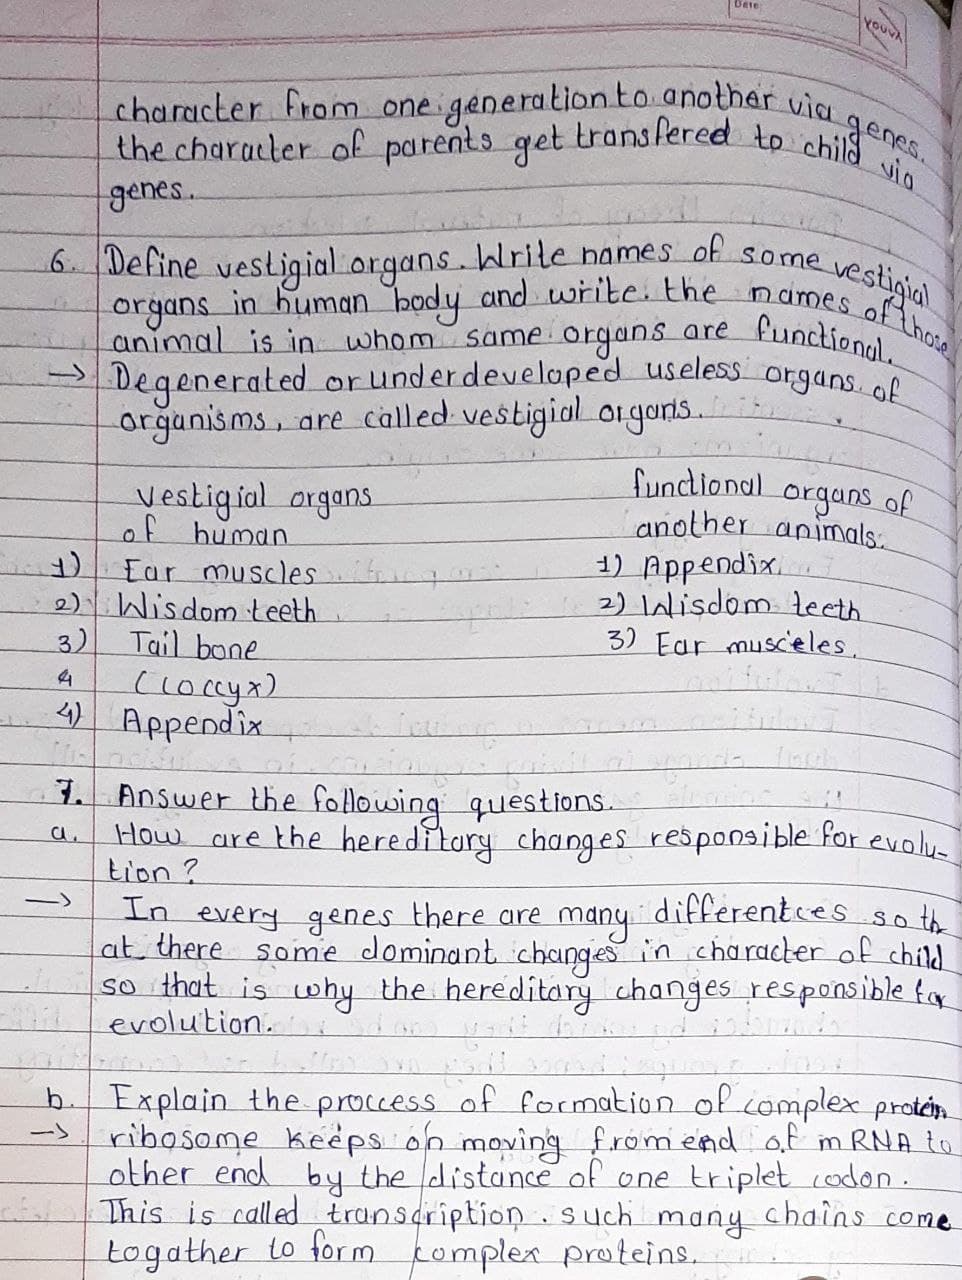 Date:
YOUVA
character from one generation to another via genes.
the character of parents get transfered to child via
genes.
6. Define vestigial organs. Write names of some vestigial
organs in human body and write the names of those
animal is in whom same organs are functional.
→ Degenerated or underdeveloped useless organs of
organisms, are called vestigial organs.
vestigial organs functional organs of
of human another animals.
1) Ear muscles 1) Appendix
2) Wisdom teeth 2) Wisdom teeth
3) Tail bone 3) Ear musceles.
4 (Coccyx)
4) Appendix
7. Answer the following questions.
a. How are the hereditary changes responsible for evolu-
tion?
→ In every genes there are many differentces so th
at there some dominant changes in character of child
so that is why the hereditary changes responsible for
evolution.
b. Explain the proccess of formation of complex protein
→ ribosome keeps on moving from end of mRNA to
other end by the distance of one triplet codon.
This is called transcription. such many chains come
togather to form complex proteins.